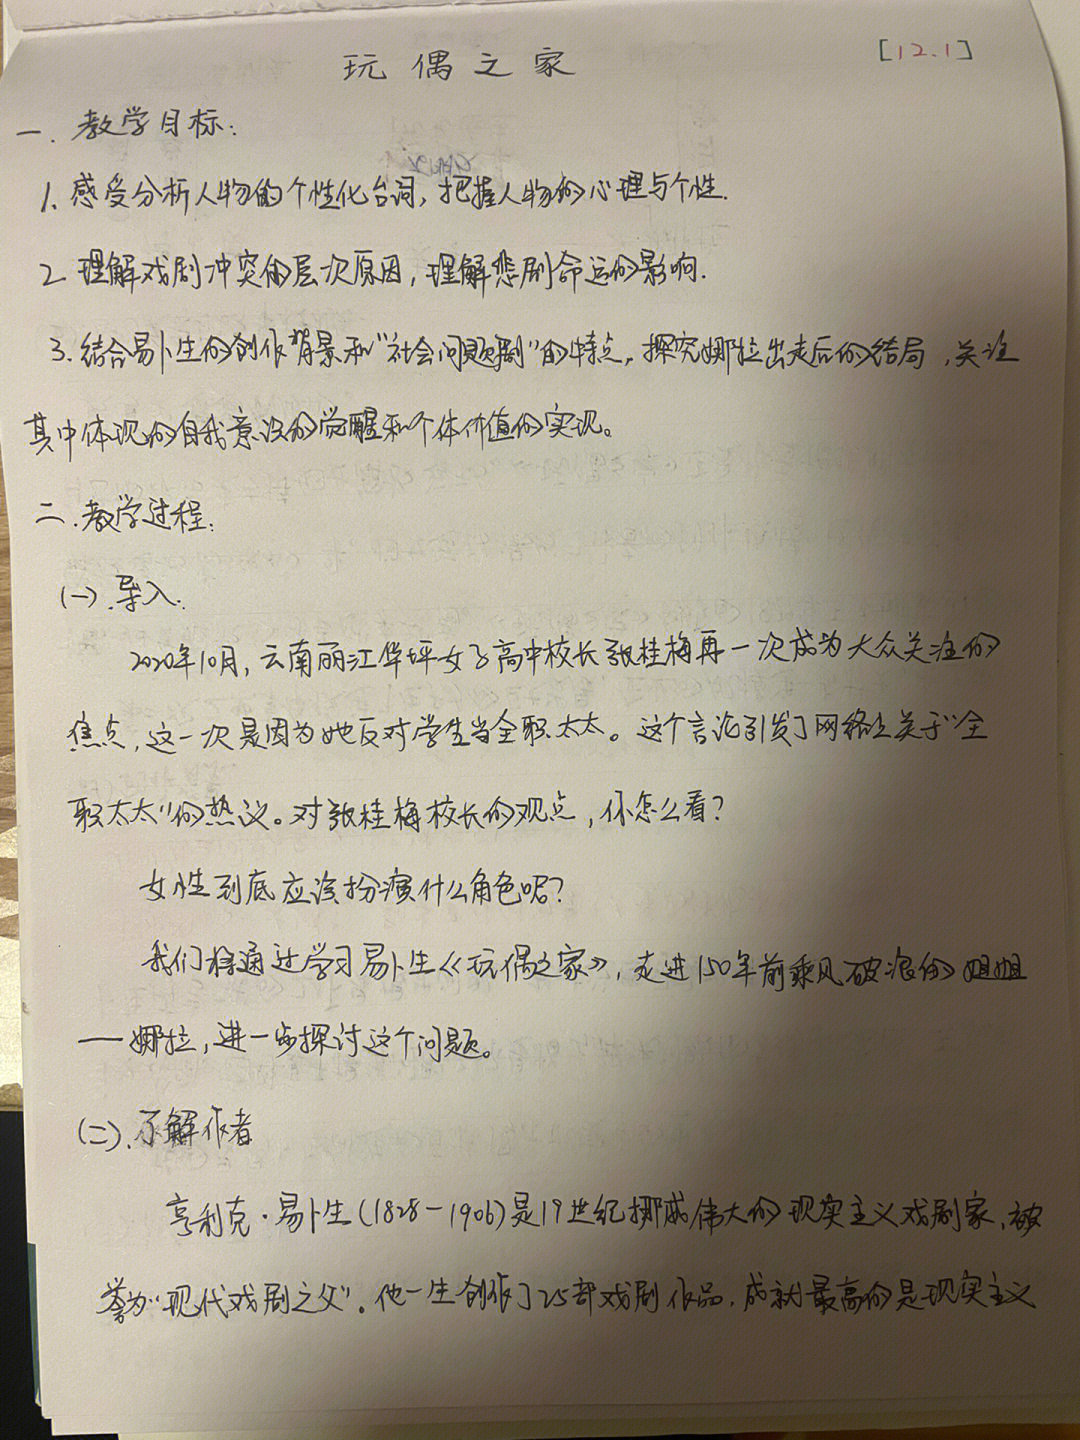 玩偶之家
[12.1]
一. 教学目标:
1. 感受分析人物的个性化台词, 把握人物的心理与个性.
2. 理解戏剧冲突的层次原因, 理解悲剧命运的影响.
3. 结合易卜生的创作背景和"社会问题剧"的特点, 探究娜拉出走后的结局, 关注
其中体现的自我意识的觉醒和个体价值的实现。
二. 教学过程:
(一). 导入:
2020年10月, 云南丽江华坪女子高中校长张桂梅再一次成为大众关注的
焦点, 这一次是因为她反对学生当全职太太。这个言论引发了网络上关于"全
职太太"的热议。对张桂梅校长的观点, 你怎么看?
女性到底应该扮演什么角色呢?
我们将通过学习易卜生《玩偶之家》, 走进150年前乘风破浪的姐姐
——娜拉, 进一步探讨这个问题。
(二). 了解作者
亨利克·易卜生(1828-1906)是19世纪挪威伟大的现实主义戏剧家, 被
誉为"现代戏剧之父". 他一生创作了25部戏剧作品, 成就最高的是现实主义